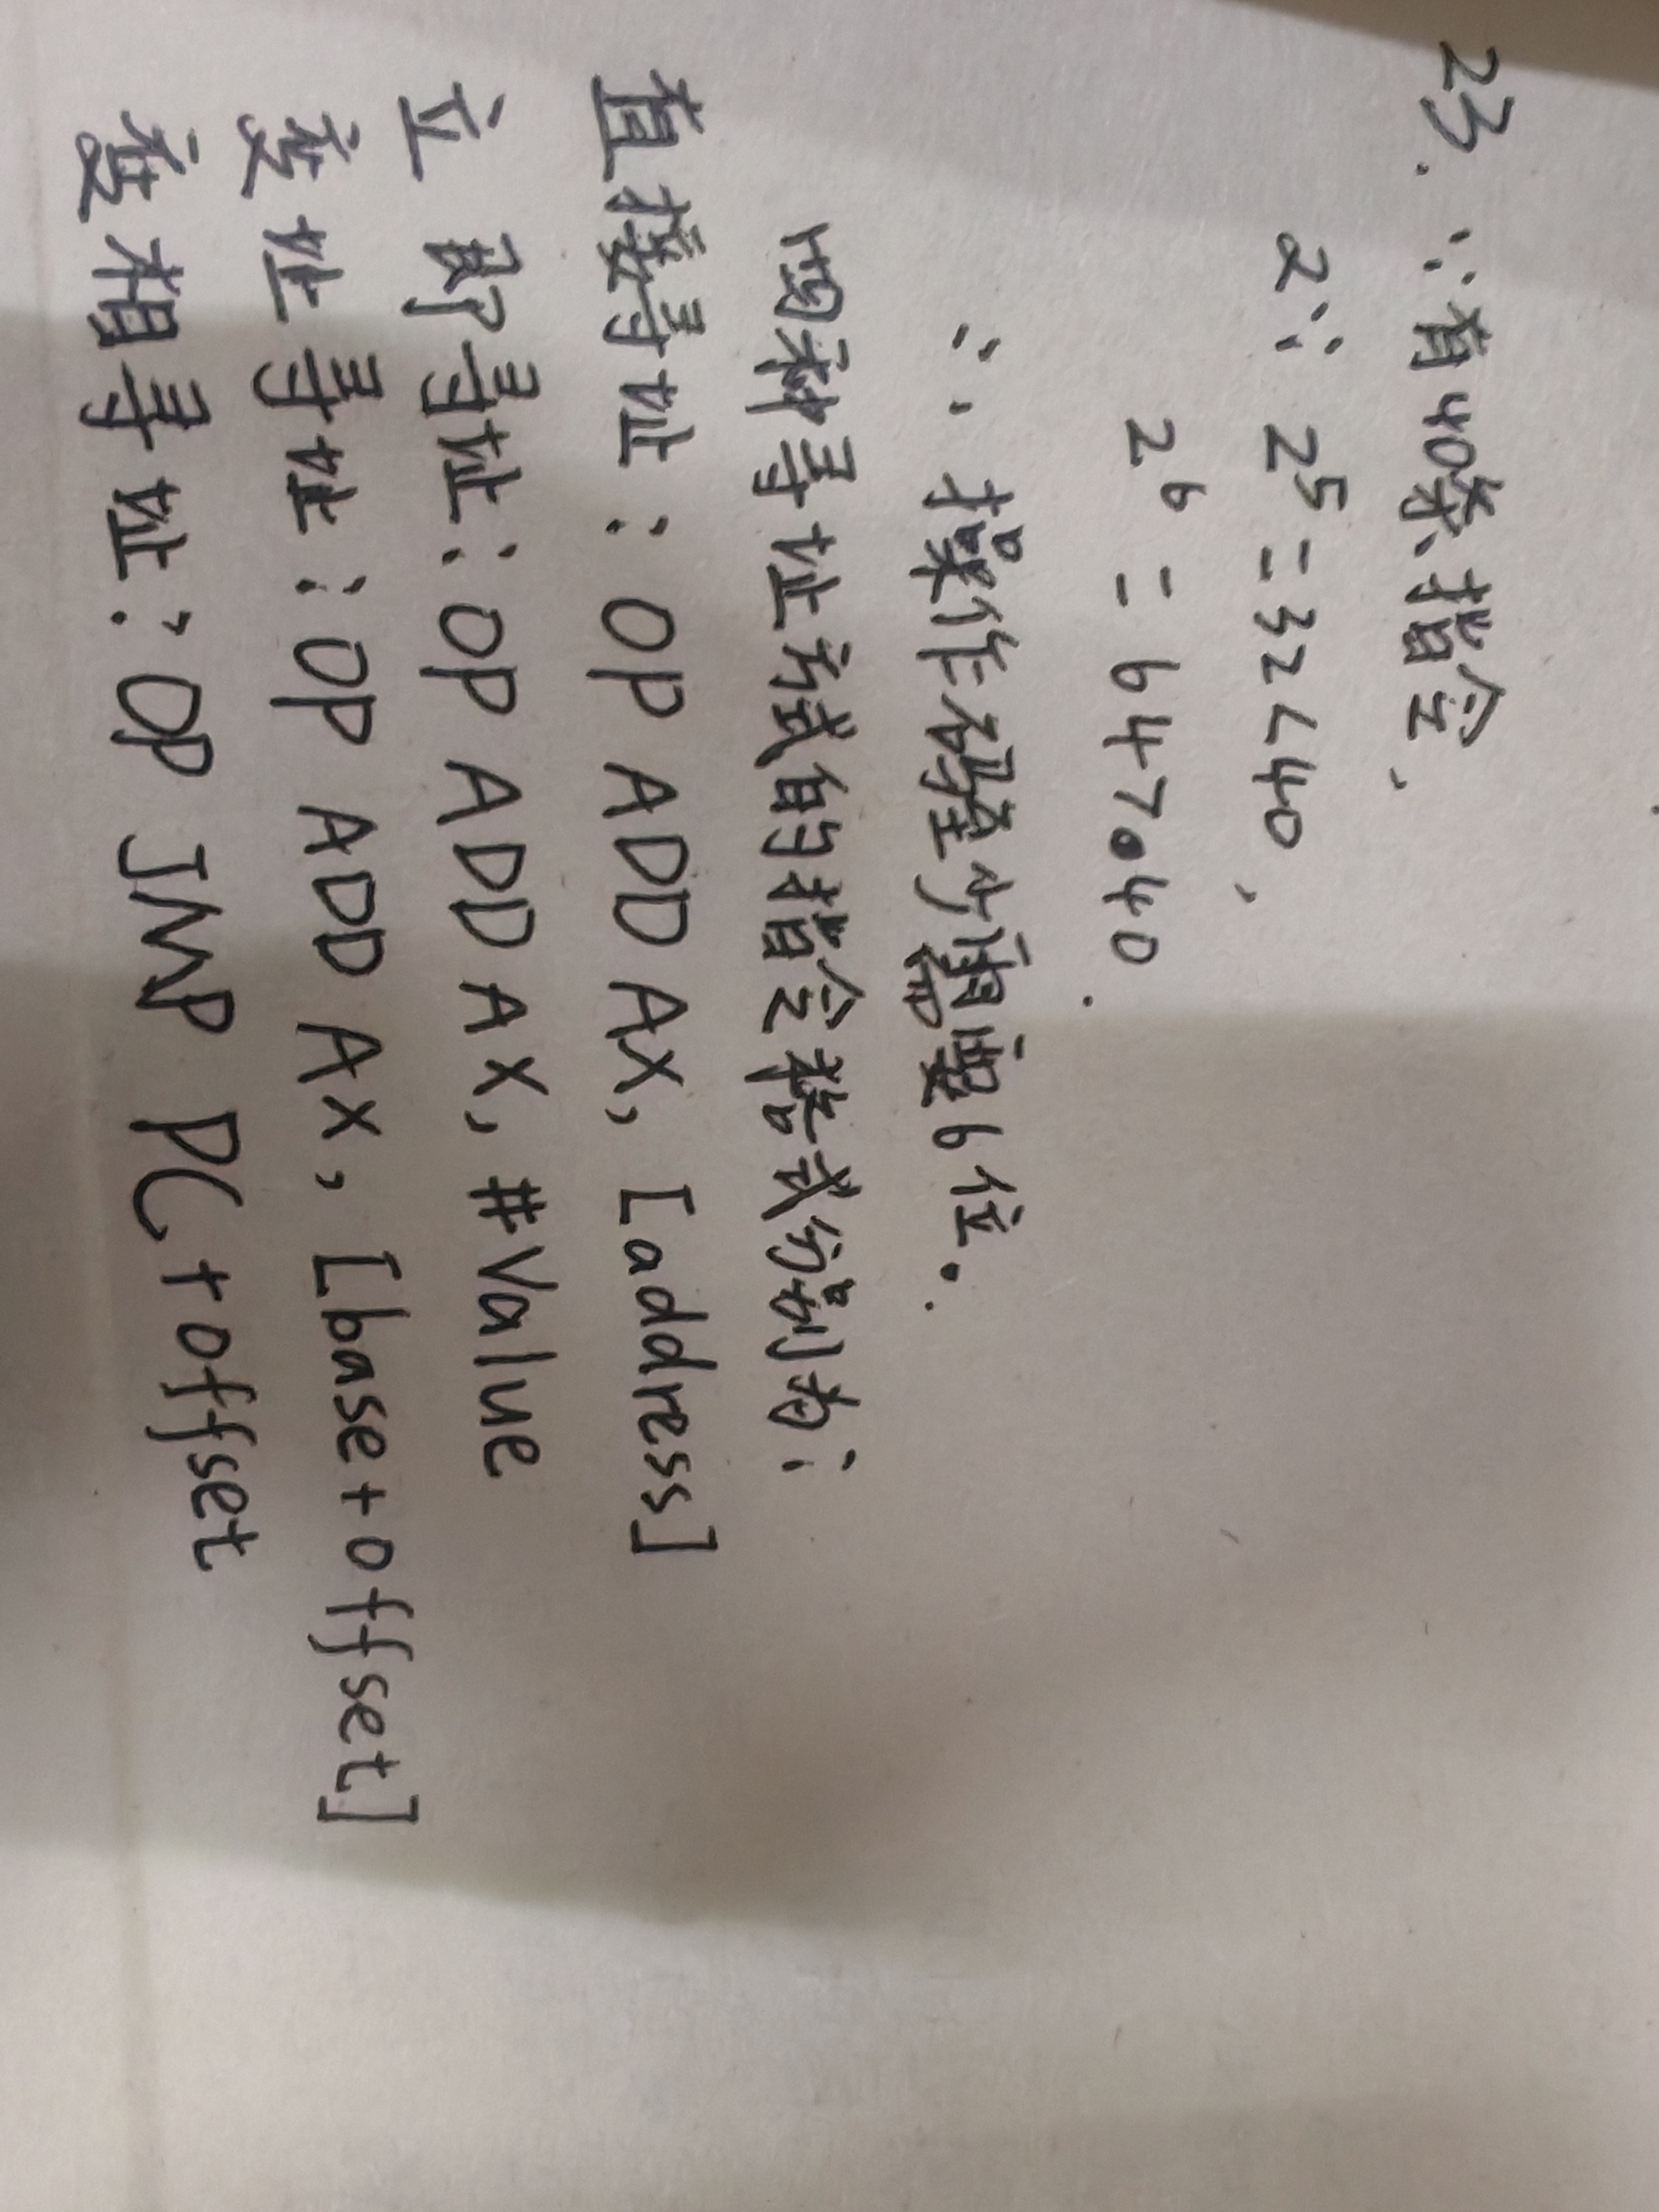 23. ∵有40条指令,
又∵ 2⁵=32<40,
2⁶ = 64>40.
∴ 操作码至少需要6位。
四种寻址方式的指令格式分别为:
直接寻址: OP ADD AX, [address]
立即寻址: OP ADD AX, #Value
变址寻址: OP ADD AX, [base+offset]
变相寻址: OP JMP PC+offset